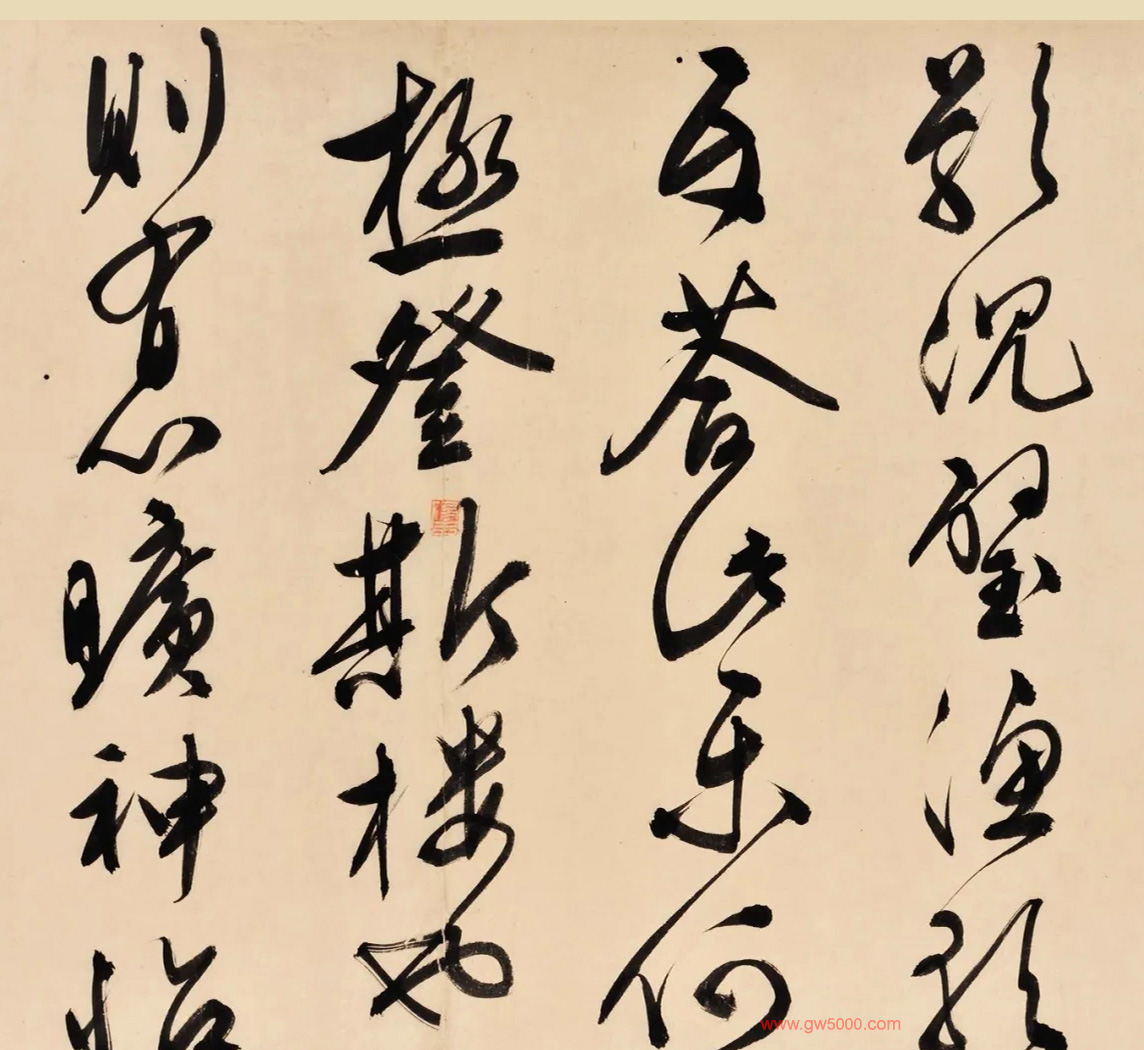 影沉璧渔歌
互答此乐何
极登斯楼也
则有心旷神怡
www.gw5000.com